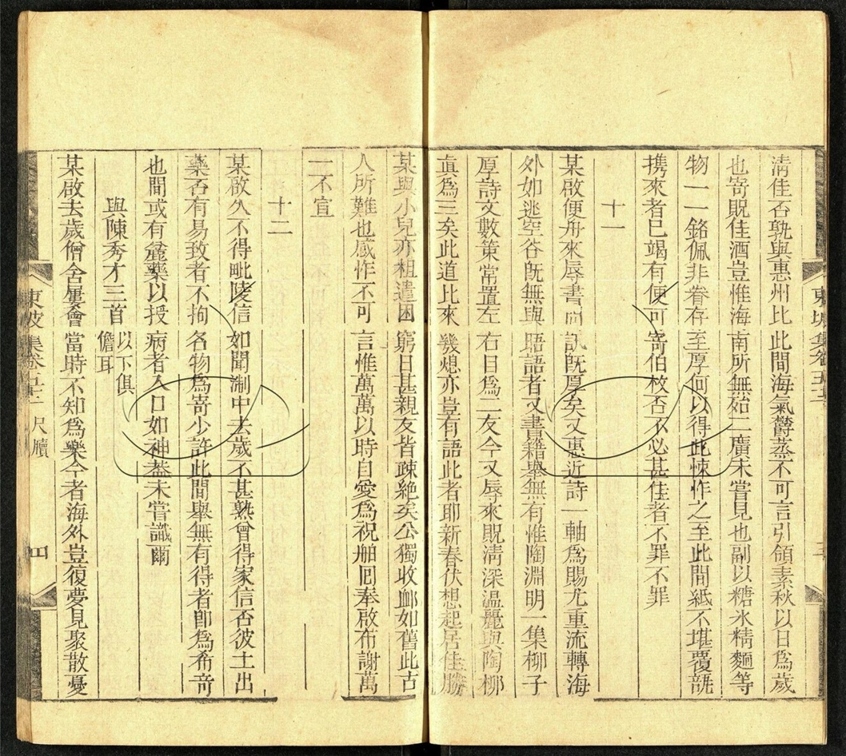 清佳否孰與惠州比此間海氣鬱蒸不可言引領素秋以日爲歲
也寄貺佳酒豈惟海南所無殆二廣未嘗見也副以糖冰精麵等
物一一銘佩非眷存至厚何以得此悚怍之至此間紙不堪覆瓿
携來者已竭有便可寄伯枚否不必甚佳者不罪不罪
十一
某啟便舟來辱書問訊既厚矣又惠近詩一軸爲賜尤重流轉海
外如逃空谷既無與晤語者又書籍舉無有惟陶淵明一集柳子
厚詩文數策常置左右目爲二友今又辱來貺清深温麗與陶柳
真爲三矣此道比來幾熄亦豈有語此者耶新春伏想起居佳勝
某與小兒亦粗遣困窮日甚親友皆疎絶矣公獨收卹如舊此古
人所難也感怍不可言惟萬萬以時自愛爲祝舶回奉啟布謝萬
一不宣
十二
某啟久不得毗陵信如聞浙中去歲不甚熟曾得家信否彼土出
藥否有易致者不拘名物爲寄少許此間舉無有得者卽爲希奇
也間或有麤藥以授病者入口如神葢未嘗識爾
與陳秀才三首 以下俱儋耳
某啟去歲僧舍屢會當時不知爲樂今者海外豈復夢見聚散憂
東坡集卷五十二 尺牘 四